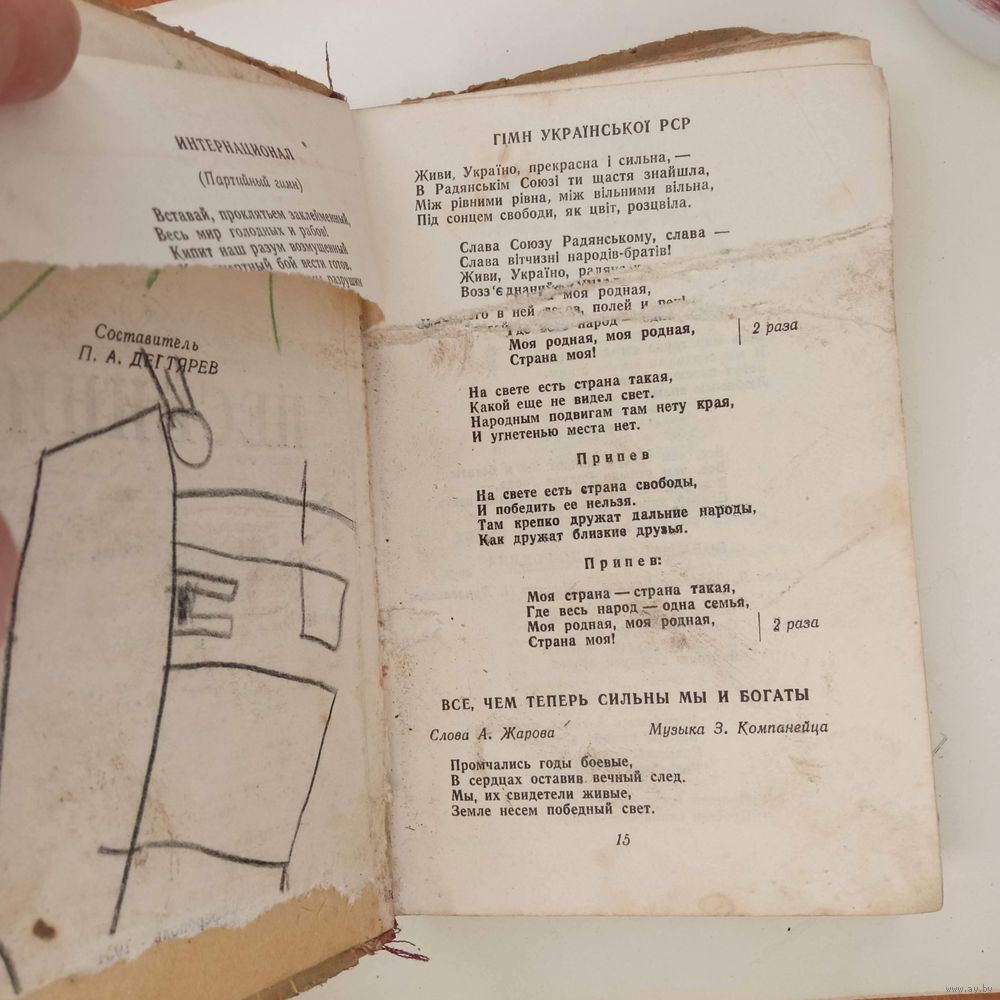 ИНТЕРНАЦИОНАЛ
(Партийный гимн)
Вставай, проклятьем заклейменный,
Весь мир голодных и рабов!
Кипит наш разум возмущенный
бой вести готов.
разрушим
Составитель
П. А. ДЕГТЯРЕВ
ГІМН УКРАЇНСЬКОЇ РСР
Живи, Україно, прекрасна і сильна, —
В Радянськім Союзі ти щастя знайшла,
Між рівними рівна, між вільними вільна,
Під сонцем свободи, як цвіт, розцвіла.
Слава Союзу Радянському, слава —
Слава вітчизні народів-братів!
Живи, Україно,
моя родная,
в ней полей и
Где народ —
Моя родная, моя родная,
Страна моя!
2 раза
На свете есть страна такая,
Какой еще не видел свет.
Народным подвигам там нету края,
И угнетенью места нет.
Припев
На свете есть страна свободы,
И победить ее нельзя.
Там крепко дружат дальние народы,
Как дружат близкие друзья.
Припев:
Моя страна — страна такая,
Где весь народ — одна семья,
Моя родная, моя родная,
Страна моя!
2 раза
ВСЕ, ЧЕМ ТЕПЕРЬ СИЛЬНЫ МЫ И БОГАТЫ
Слова А. Жарова Музыка З. Компанейца
Промчались годы боевые,
В сердцах оставив вечный след.
Мы, их свидетели живые,
Земле несем победный свет.
15
www.av.by